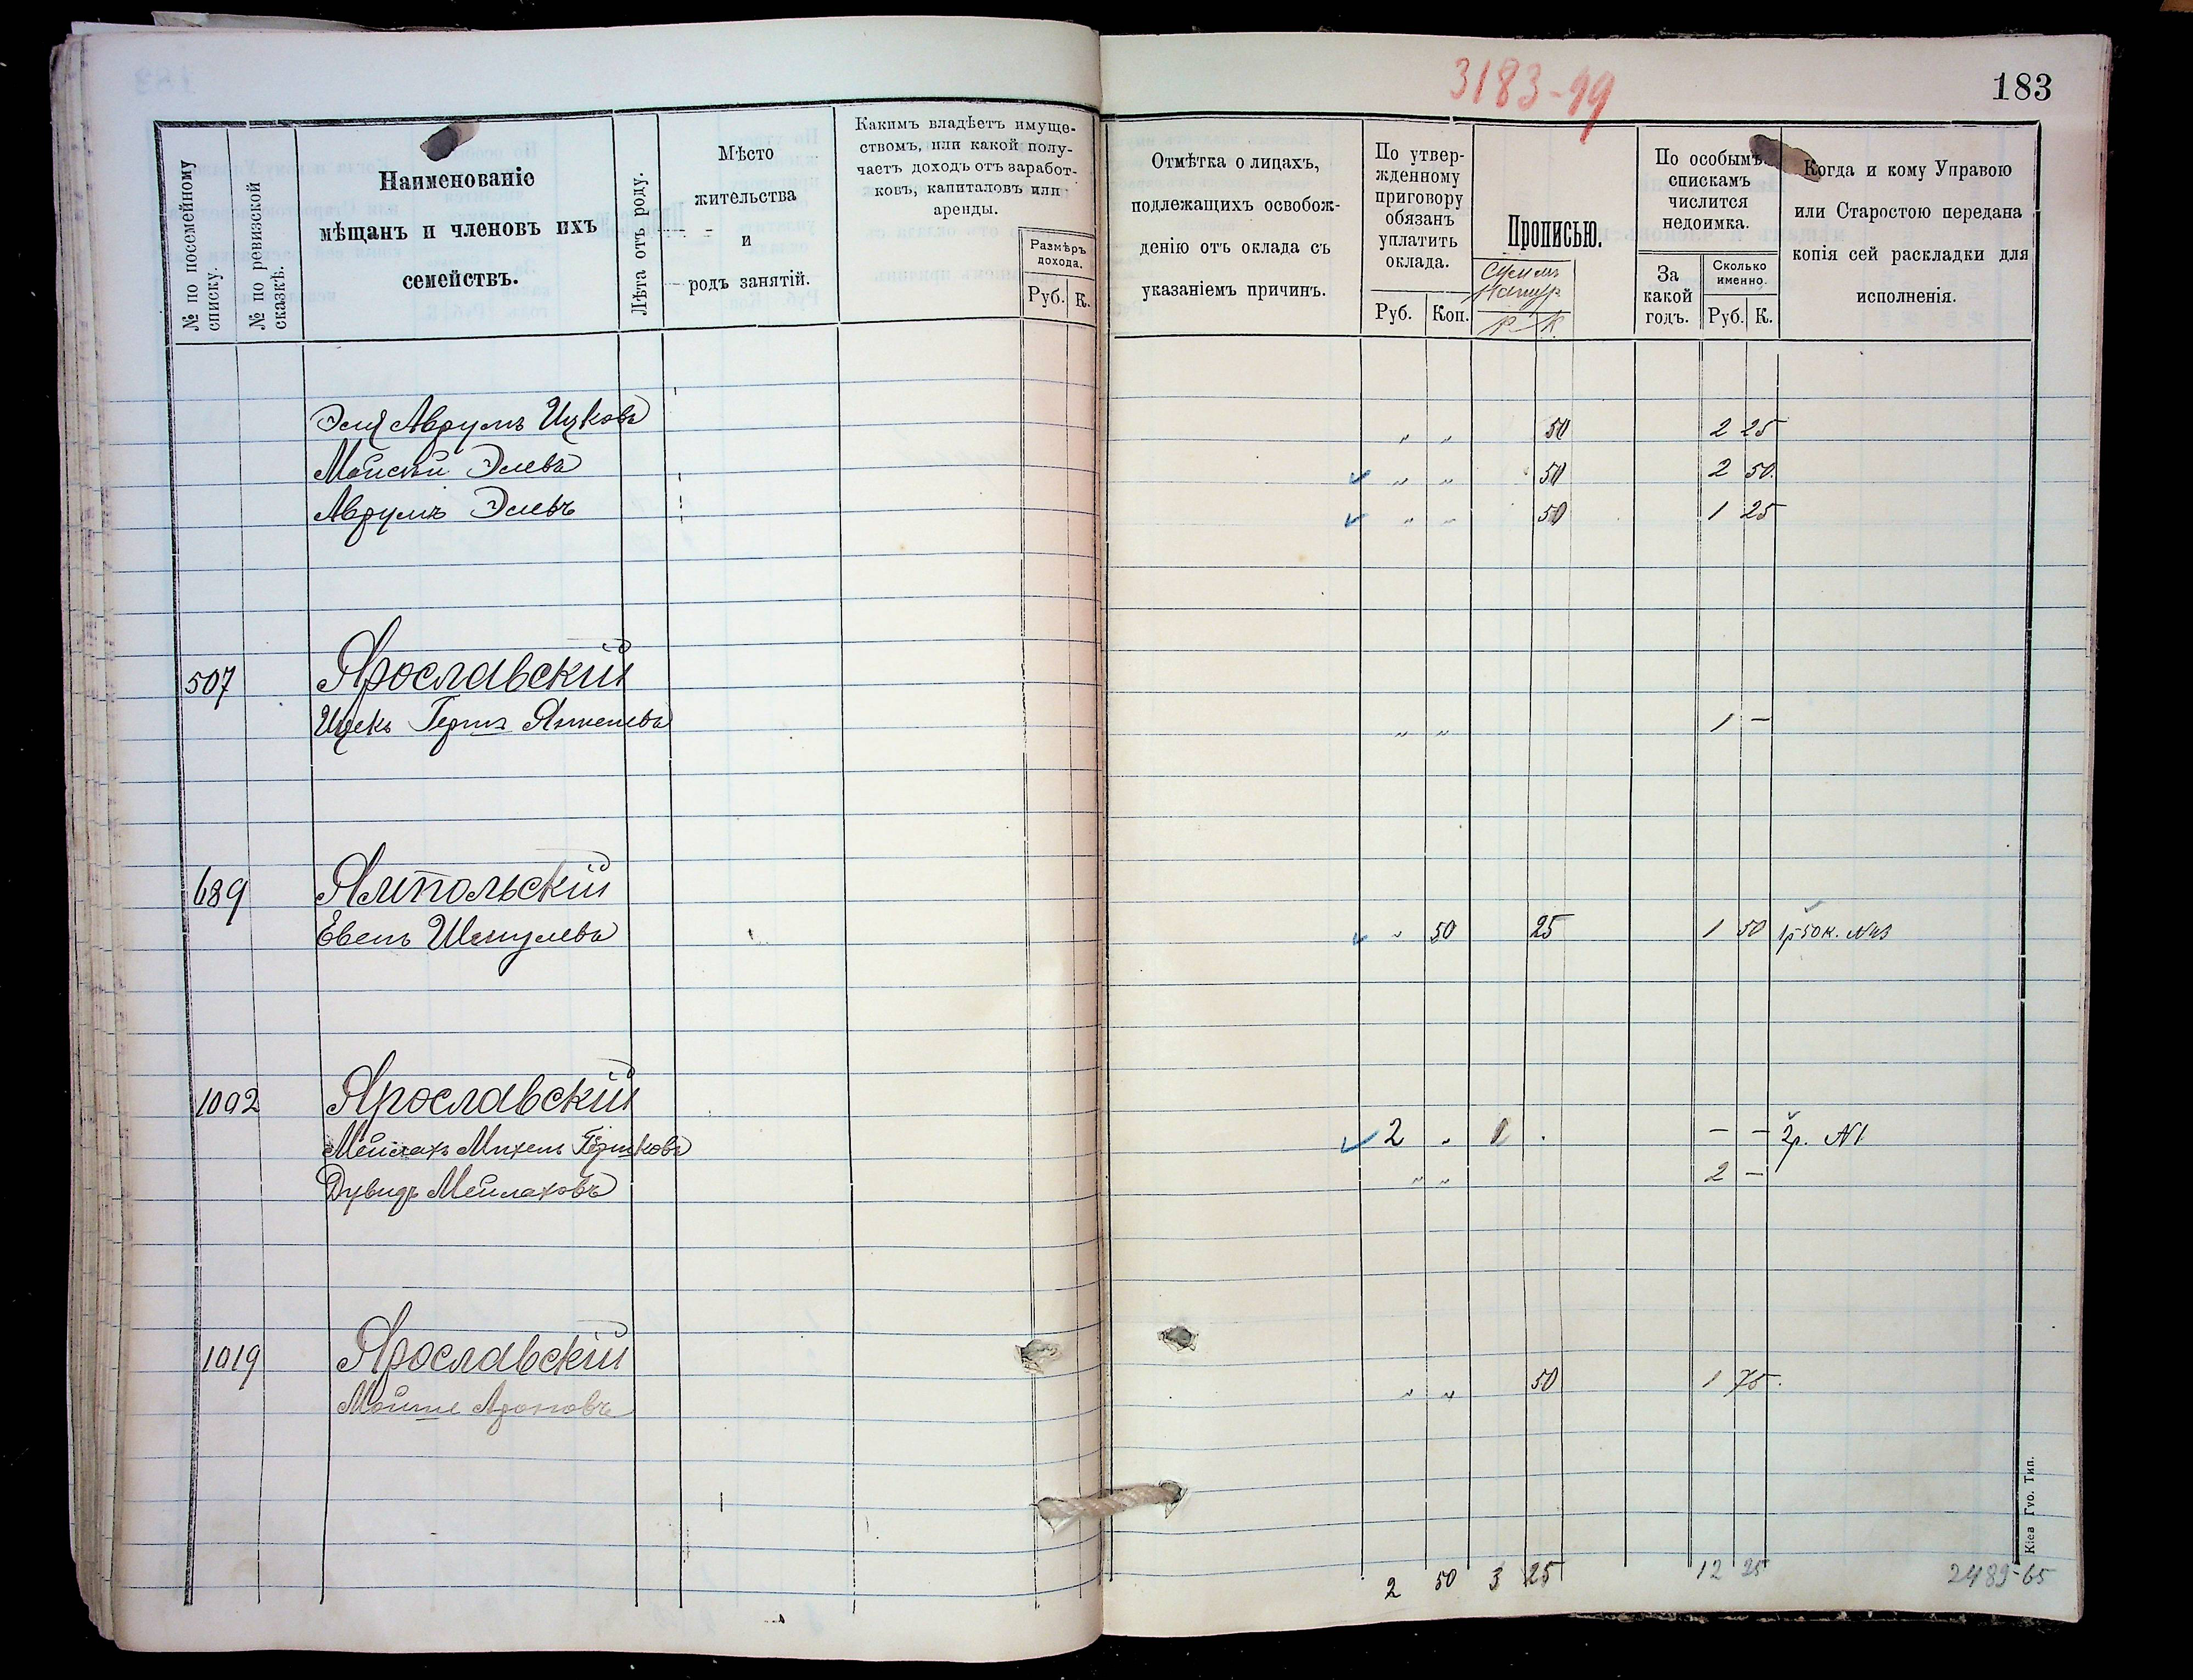 3183-99
183
№ по посемейному списку.
№ по ревизской сказкѣ.
Наименованіе
мѣщанъ и членовъ ихъ
семействъ.
Лѣта отъ роду.
Мѣсто
жительства
и
родъ занятій.
Какимъ владѣетъ имуще-
ствомъ, или какой полу-
чаетъ доходъ отъ заработ-
ковъ, капиталовъ или
аренды.
Размѣръ
дохода.
Руб. К.
Отмѣтка о лицахъ,
подлежащихъ освобож-
денію отъ оклада съ
указаніемъ причинъ.
По утвер-
жденному
приговору
обязанъ
уплатить
оклада.
Руб. Коп.
Прописью.
Р К
По особымъ
спискамъ
числится
недоимка.
За
какой
годъ.
Сколько
именно.
Руб. К.
Когда и кому Управою
или Старостою передана
копія сей раскладки для
исполненія.
Аврумъ Ицковъ " " 50 2 25
Элевъ " " 50 2 50
Аврумъ Элевъ " " 50 1 25
507 Ярославскій
Герш Янкелевъ " " 1 —
689 Ямпольскій
Шмулевъ " 50 25 1 50 1р 50к.
1092 Ярославскій
Мейлахъ Михель Гершковъ 2 " 1 . — — 2р. №1
Дувидъ Мейлаховъ " " 2 —
1019 Ярославскій
Мойше Ароновъ " " 50 1 75
2 50 3 25 12 25
2489-65
Кіев Губ. Тип.